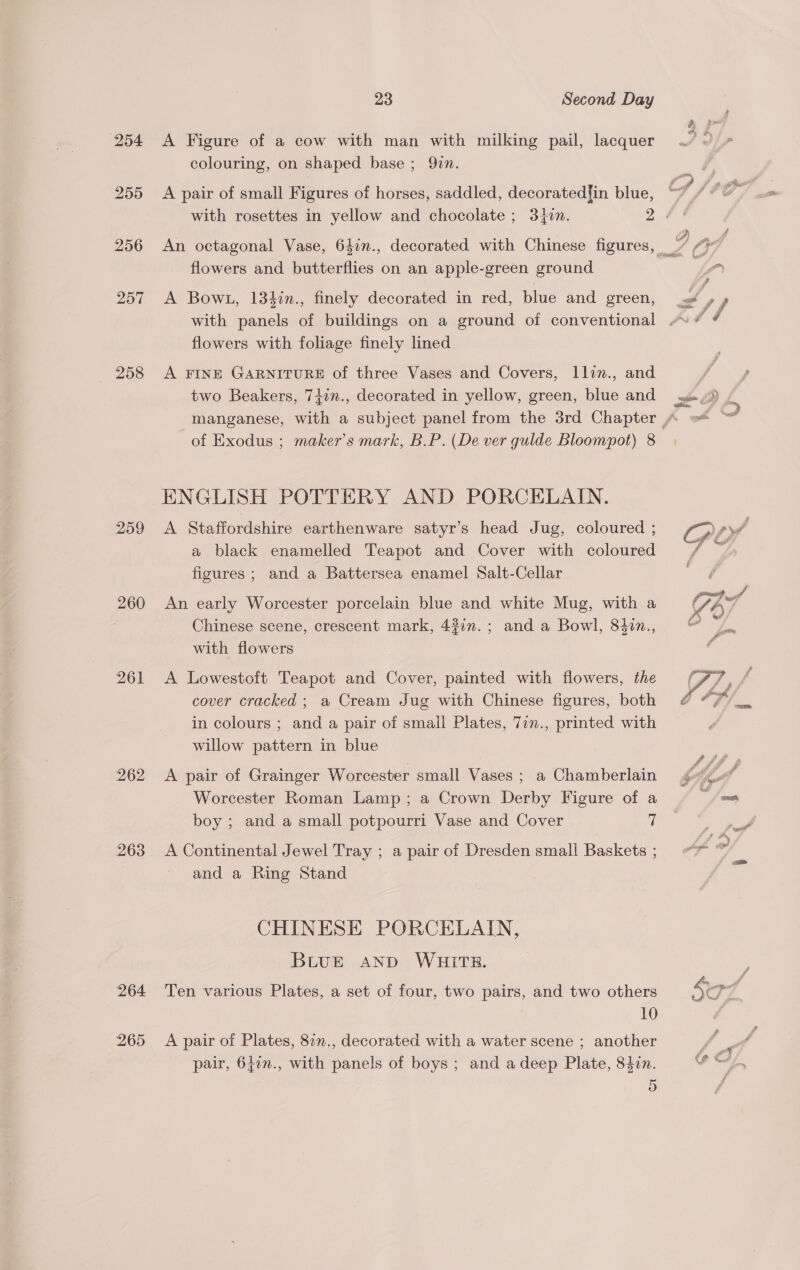 23 Second Day
254 A Figure of a cow with man with milking pail, lacquer
colouring, on shaped base ; 9in.
255 A pair of small Figures of horses, saddled, decorated in blue,
with rosettes in yellow and chocolate ; 3¼in. 2
256 An octagonal Vase, 6½in., decorated with Chinese figures,
flowers and butterflies on an apple-green ground
257 A BOWL, 13½in., finely decorated in red, blue and green,
with panels of buildings on a ground of conventional
flowers with foliage finely lined
258 A FINE GARNITURE of three Vases and Covers, 11in., and
two Beakers, 7¼in., decorated in yellow, green, blue and
manganese, with a subject panel from the 3rd Chapter
of Exodus ; maker's mark, B.P. (De ver gulde Bloompot) 8
ENGLISH POTTERY AND PORCELAIN.
259 A Staffordshire earthenware satyr's head Jug, coloured ;
a black enamelled Teapot and Cover with coloured
figures ; and a Battersea enamel Salt-Cellar
260 An early Worcester porcelain blue and white Mug, with a
Chinese scene, crescent mark, 4¾in. ; and a Bowl, 8½in.,
with flowers
261 A Lowestoft Teapot and Cover, painted with flowers, the
cover cracked ; a Cream Jug with Chinese figures, both
in colours ; and a pair of small Plates, 7in., printed with
willow pattern in blue
262 A pair of Grainger Worcester small Vases ; a Chamberlain
Worcester Roman Lamp ; a Crown Derby Figure of a
boy ; and a small potpourri Vase and Cover 7
263 A Continental Jewel Tray ; a pair of Dresden small Baskets ;
and a Ring Stand
CHINESE PORCELAIN,
BLUE AND WHITE.
264 Ten various Plates, a set of four, two pairs, and two others
10
265 A pair of Plates, 8in., decorated with a water scene ; another
pair, 6¼in., with panels of boys ; and a deep Plate, 8½in.
5